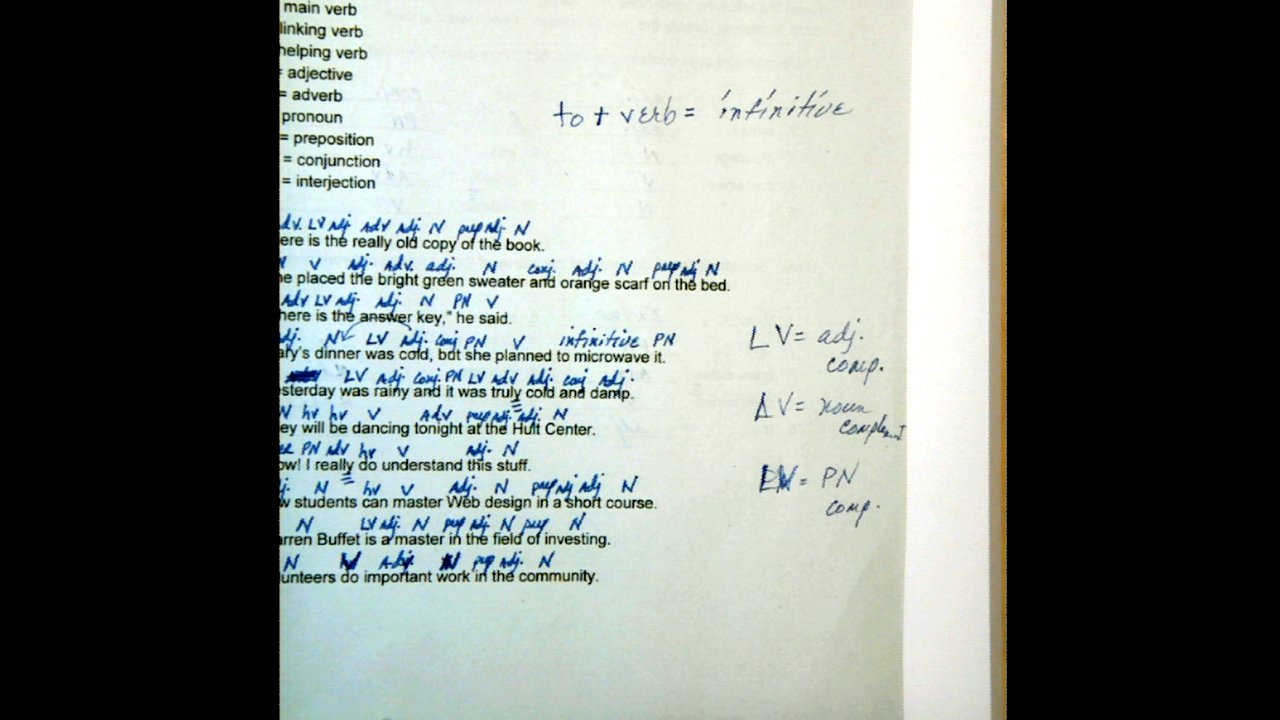 main verb
linking verb
helping verb
= adjective
= adverb
pronoun
= preposition
= conjunction
= interjection
to + verb = infinitive
adv. LV adj. Adv adj. N prep adj. N
ere is the really old copy of the book.
N V adj. Adv. adj. N conj. Adj. N prep adj N
he placed the bright green sweater and orange scarf on the bed.
Adv LV adj. adj. N PN V
here is the answer key," he said.
adj. N LV adj. conj PN V infinitive PN
ary's dinner was cold, but she planned to microwave it.
LV = adj. comp.
LV Adj conj. PN LV Adv Adj. conj Adj.
sterday was rainy and it was truly cold and damp.
LV = noun complement
N hv hv V Adv prep adj. adj. N
ey will be dancing tonight at the Hult Center.
PN adv hv V adj. N
ow! I really do understand this stuff.
LV = PN comp.
j. N hv V Adj. N prep adj adj N
w students can master Web design in a short course.
N LV adj. N prep adj N prep N
arren Buffet is a master in the field of investing.
N Adj. N prep adj. N
unteers do important work in the community.